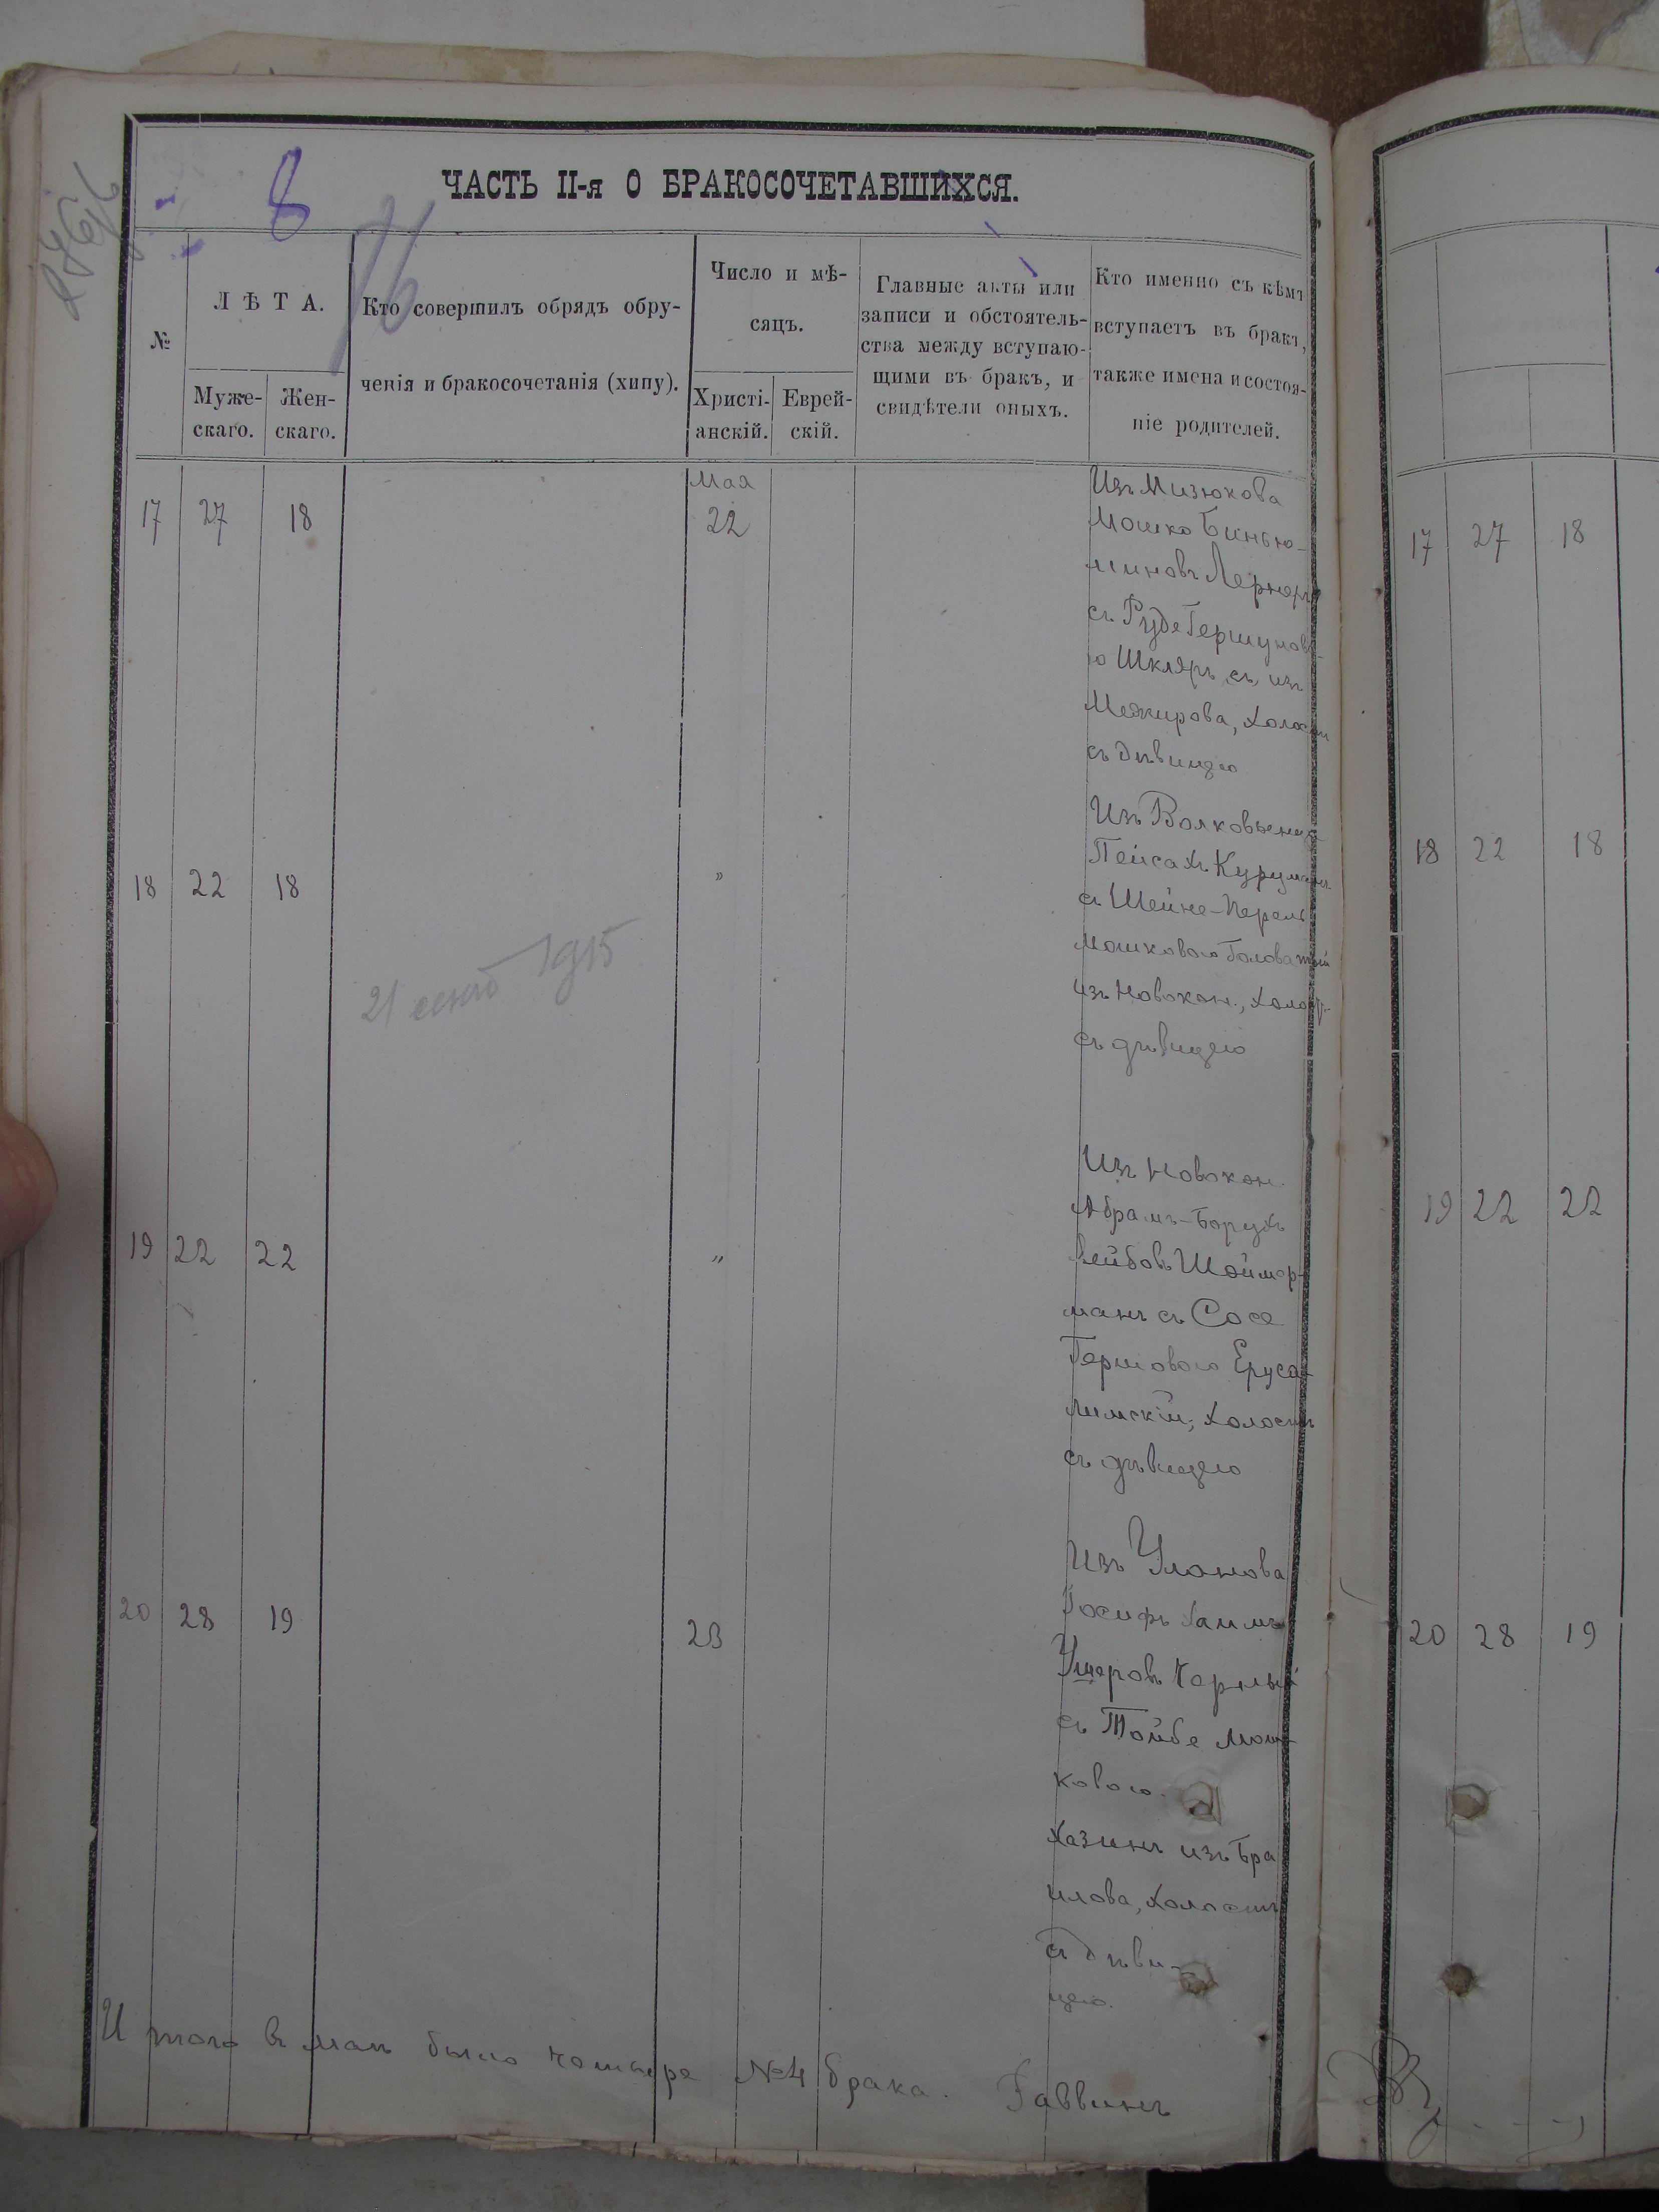 8
ЧАСТЬ II-я О БРАКОСОЧЕТАВШИХСЯ.
№
ЛѢТА.
Муже-
скаго.
Жен-
скаго.
Кто совершилъ обрядъ обру-
ченія и бракосочетанія (хипу).
Число и мѣ-
сяцъ.
Христі-
анскій.
Еврей-
скій.
Главные акты или
записи и обстоятель-
ства между вступаю-
щими въ бракъ, и
свидѣтели оныхъ.
Кто именно съ кѣмъ
вступаетъ въ бракъ,
также имена и состоя-
ніе родителей.
17 27 18
Мая
22
Изъ Мизюкова
Мошко Бинью-
миновъ Лернеръ
съ Рудe Гершуново-
ю Шкляръ, съ, изъ
Межирова, холостъ
съ дѣвицею
18 22 18 "
Изъ Волковинецъ
Пейсахъ Курцманъ
съ Шейне-Перель
Мошковою Головатый
изъ Новокон., холост.
съ дѣвицею
21 сент 1915
19 22 22 "
Изъ Новокон.
Абрамъ-Борухъ
Лейбовъ Шоймер-
манъ съ Сосе
Гершовою Еруса-
лимскій, холостъ
съ дѣвицею
20 28 19 23
Изъ Уланова
Іосифъ Хаимъ
Ушеровъ Черный
съ Тойбе Мош-
ковою
Хазинъ изъ Бра
илова, холостъ
съ дѣви-
цею.
И того въ маѣ было четыре №4 брака. Раввинъ
17 27 18
18 22 18
19 22 22
20 28 19